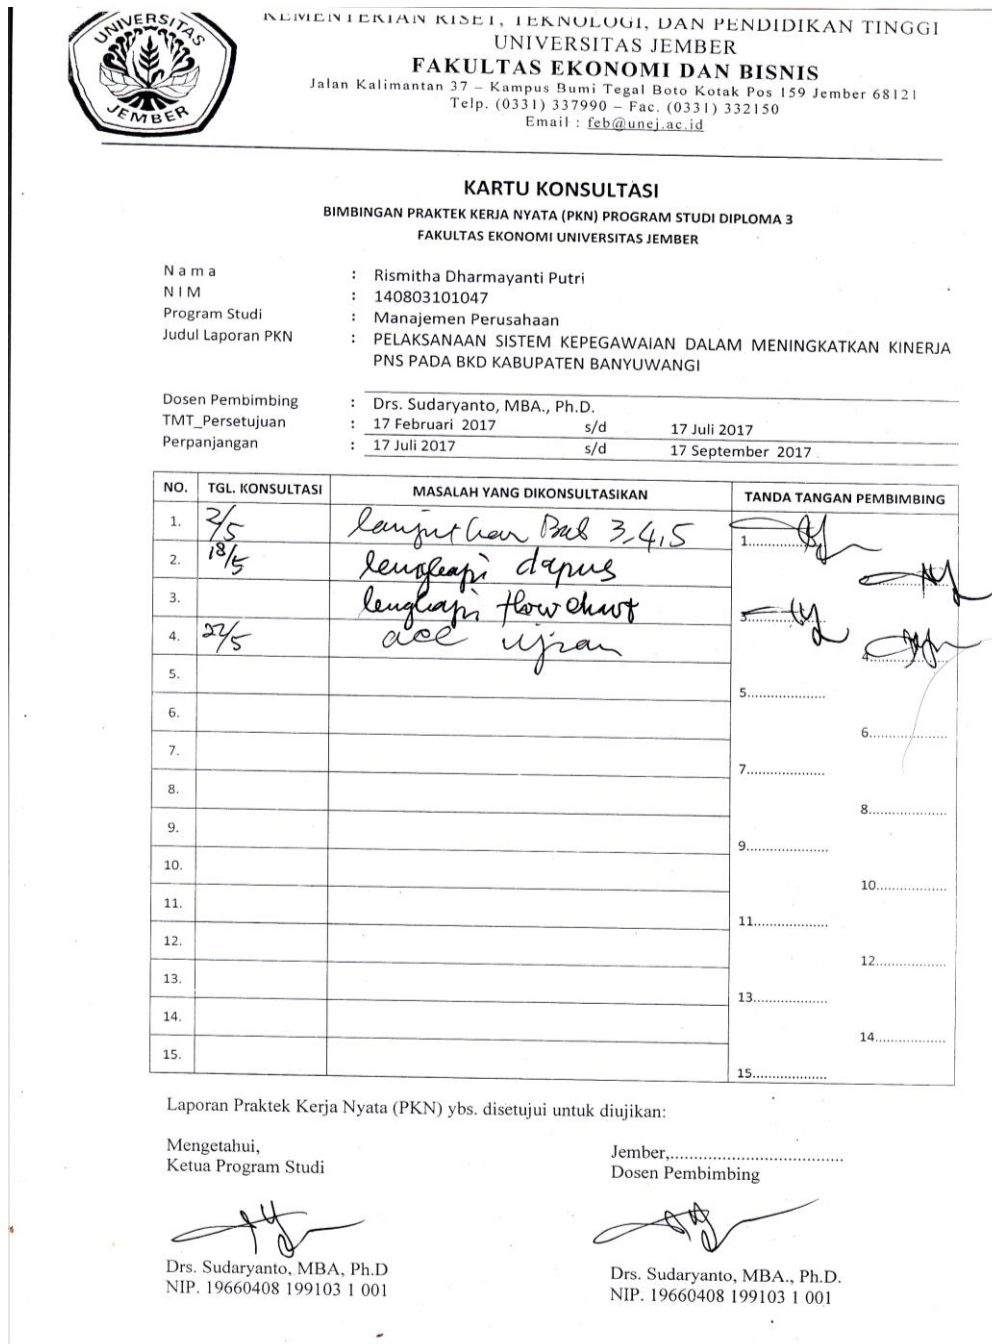 UNIVERSITAS
JEMBER
KEMENTERIAN RISET, TEKNOLOGI, DAN PENDIDIKAN TINGGI
UNIVERSITAS JEMBER
FAKULTAS EKONOMI DAN BISNIS
Jalan Kalimantan 37 – Kampus Bumi Tegal Boto Kotak Pos 159 Jember 68121
Telp. (0331) 337990 – Fac. (0331) 332150
Email : feb@unej.ac.id
KARTU KONSULTASI
BIMBINGAN PRAKTEK KERJA NYATA (PKN) PROGRAM STUDI DIPLOMA 3
FAKULTAS EKONOMI UNIVERSITAS JEMBER
N a m a : Rismitha Dharmayanti Putri
N I M : 140803101047
Program Studi : Manajemen Perusahaan
Judul Laporan PKN : PELAKSANAAN SISTEM KEPEGAWAIAN DALAM MENINGKATKAN KINERJA
PNS PADA BKD KABUPATEN BANYUWANGI
Dosen Pembimbing : Drs. Sudaryanto, MBA., Ph.D.
TMT_Persetujuan : 17 Februari 2017 s/d 17 Juli 2017
Perpanjangan : 17 Juli 2017 s/d 17 September 2017
NO. TGL. KONSULTASI MASALAH YANG DIKONSULTASIKAN TANDA TANGAN PEMBIMBING
1. 2/5 lanjutkan Bab 3,4,5 1..............
2. 18/5 lengkapi dapus
3. lengkapi flow chart 3.
4. 22/5 acc ujian 4..............
5. 5....................
6. 6....................
7. 7....................
8. 8....................
9. 9....................
10. 10..................
11. 11..................
12. 12..................
13. 13..................
14. 14..................
15. 15..................
Laporan Praktek Kerja Nyata (PKN) ybs. disetujui untuk diujikan:
Mengetahui,
Ketua Program Studi
Jember,.....................................
Dosen Pembimbing
Drs. Sudaryanto, MBA, Ph.D
NIP. 19660408 199103 1 001
Drs. Sudaryanto, MBA., Ph.D.
NIP. 19660408 199103 1 001